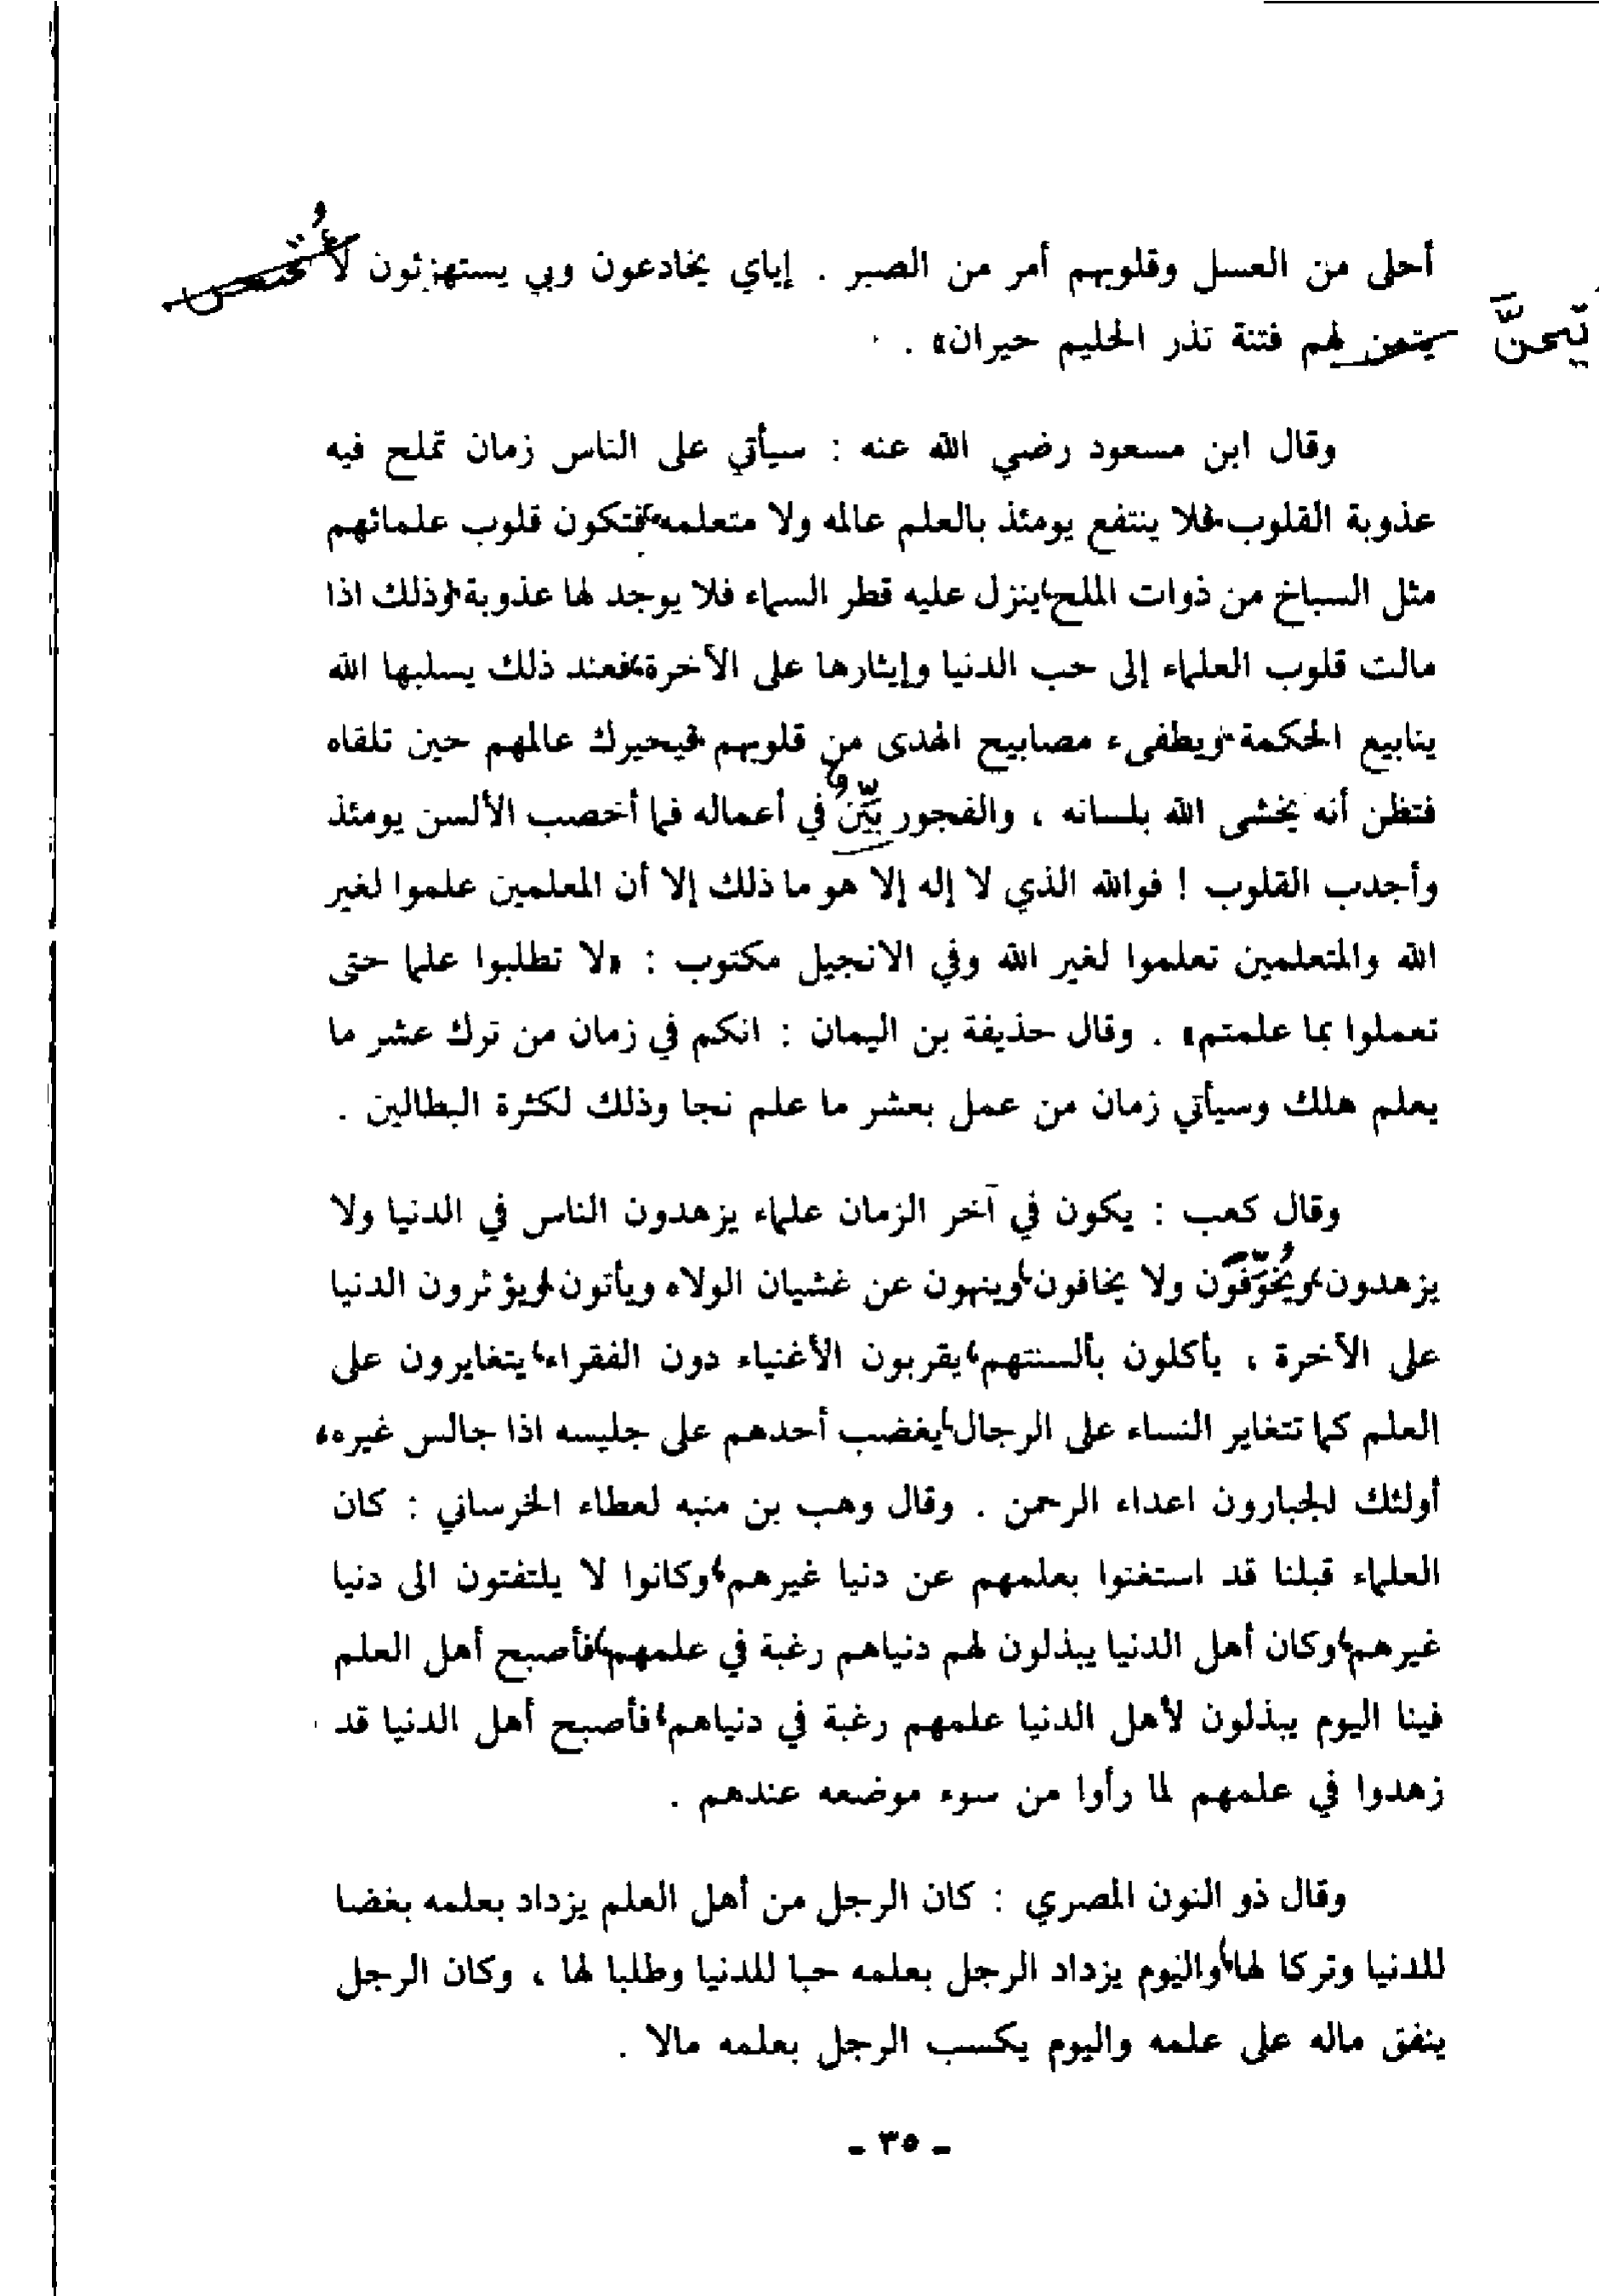 أحلى من العسل وقلوبهم أمر من الصبر . إياي يخادعون وبي يستهزئون لأ
لهم فتنة تذر الحليم حيران» .
وقال ابن مسعود رضي الله عنه : سيأتي على الناس زمان تملح فيه
عذوبة القلوب، فلا ينتفع يومئذ بالعلم عالمه ولا متعلمه، فتكون قلوب علمائهم
مثل السباخ من ذوات الملح، ينزل عليه قطر السماء فلا يوجد لها عذوبة، وذلك اذا
مالت قلوب العلماء إلى حب الدنيا وإيثارها على الآخرة، فعند ذلك يسلبها الله
ينابيع الحكمة، ويطفىء مصابيح الهدى من قلوبهم، فيحيرك عالمهم حين تلقاه
فتظن أنه يخشى الله بلسانه ، والفجور بَيِّنٌ في أعماله فما أخصب الألسن يومئذ
وأجدب القلوب ! فوالله الذي لا إله إلا هو ما ذلك إلا أن المعلمين علموا لغير
الله والمتعلمين تعلموا لغير الله وفي الانجيل مكتوب : «لا تطلبوا علما حتى
تعملوا بما علمتم» . وقال حذيفة بن اليمان : انكم في زمان من ترك عشر ما
يعلم هلك وسيأتي زمان من عمل بعشر ما علم نجا وذلك لكثرة البطالين .
وقال كعب : يكون في آخر الزمان علماء يزهدون الناس في الدنيا ولا
يزهدون، ويُخَوِّفَون ولا يخافون، وينهون عن غشيان الولاه ويأتون، ويؤثرون الدنيا
على الآخرة ، يأكلون بألسنتهم، يقربون الأغنياء دون الفقراء، يتغايرون على
العلم كما تتغاير النساء على الرجال، يغضب أحدهم على جليسه اذا جالس غيره،
أولئك الجبارون اعداء الرحمن . وقال وهب بن منبه لعطاء الخرساني : كان
العلماء قبلنا قد استغنوا بعلمهم عن دنيا غيرهم، وكانوا لا يلتفتون الى دنيا
غيرهم، وكان أهل الدنيا يبذلون لهم دنياهم رغبة في علمهم، فأصبح أهل العلم
فينا اليوم يبذلون لأهل الدنيا علمهم رغبة في دنياهم، فأصبح أهل الدنيا قد
زهدوا في علمهم لما رأوا من سوء موضعه عندهم .
وقال ذو النون المصري : كان الرجل من أهل العلم يزداد بعلمه بغضا
للدنيا وتركا لها، واليوم يزداد الرجل بعلمه حبا للدنيا وطلبا لها ، وكان الرجل
ينفق ماله على علمه واليوم يكسب الرجل بعلمه مالا .
- ٣٥ -